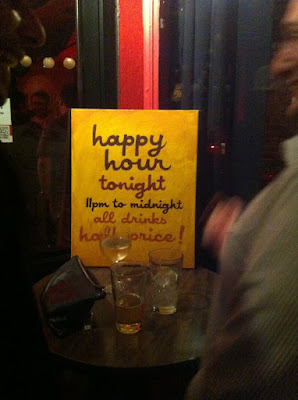 happy
hour
tonight
11pm to midnight
all drinks
half price!